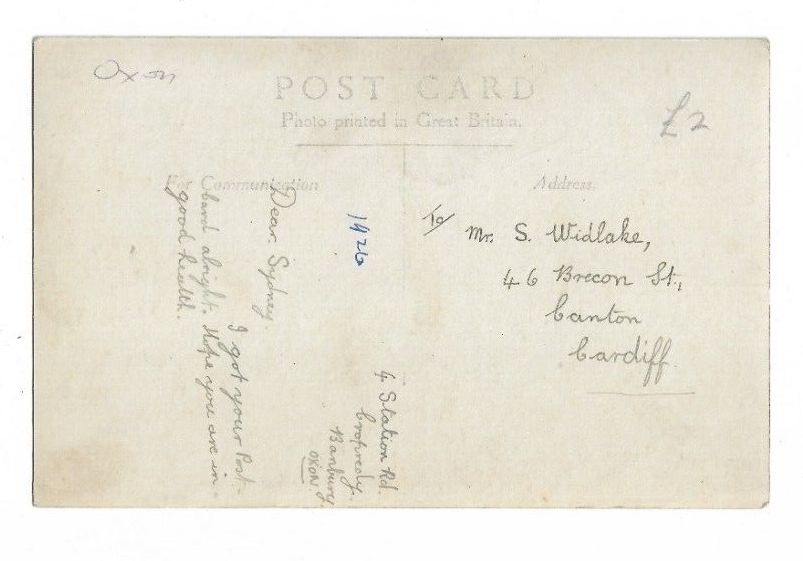 Oxon
POST CARD
Photo printed in Great Britain.
£2
For Communication
Address.
1926
4 Station Rd.
Cropredy.
Banbury.
OXON.
Dear Sydney
I got your Post-
card alright. Hope you are in
good health.
To/
Mr. S. Widlake,
46 Brecon St.,
Canton
Cardiff.